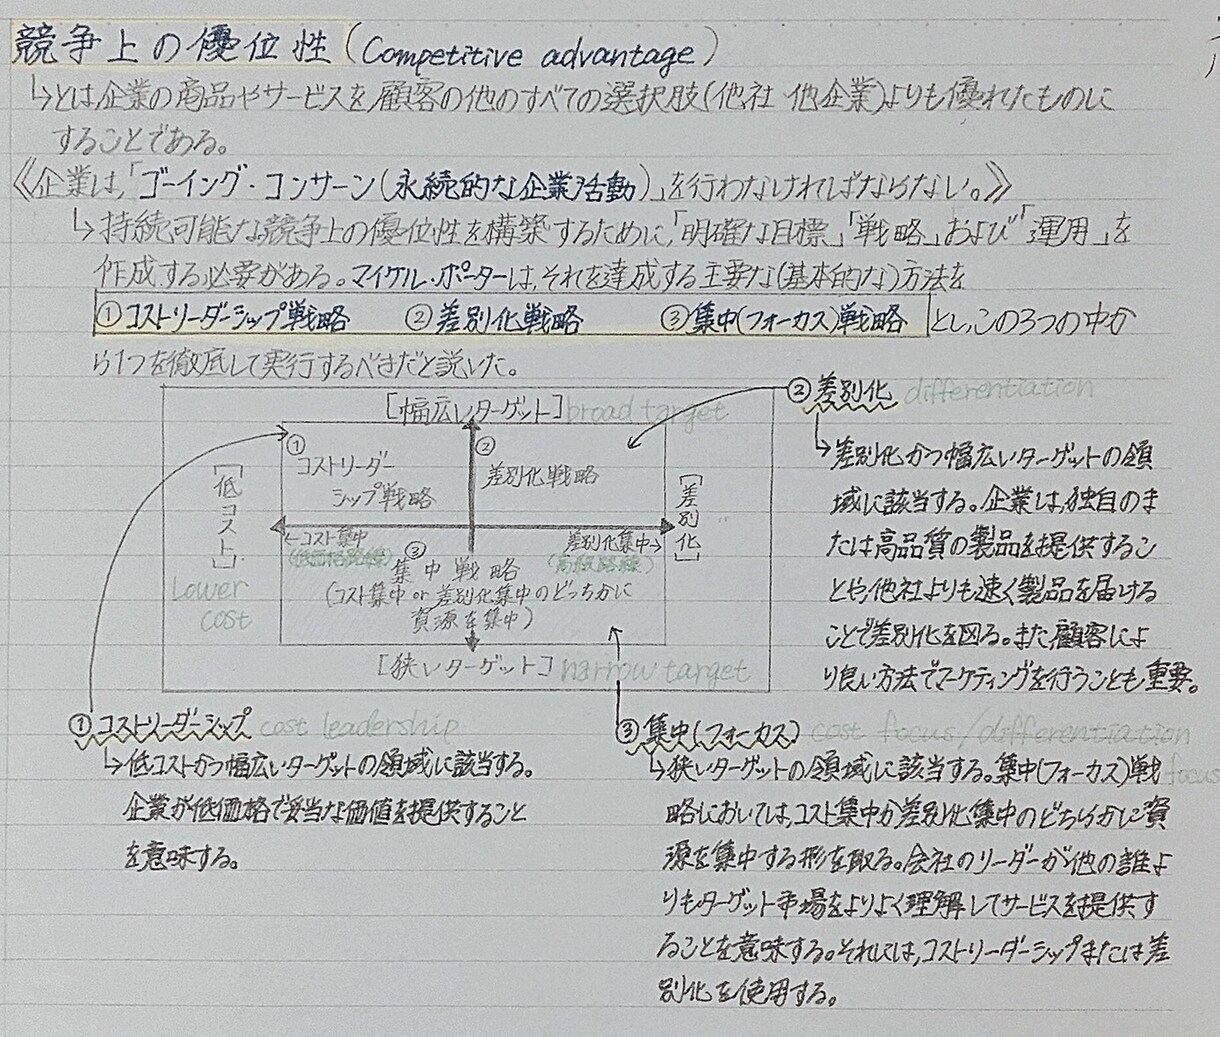 競争上の優位性(Competitive advantage)
↳とは、企業の商品やサービスを、顧客の他のすべての選択肢(他社 他企業)よりも優れたものに
することである。
《企業は、「ゴーイング・コンサーン(永続的な企業活動)」を行わなければならない。》
↳持続可能な競争上の優位性を構築するために、「明確な目標」「戦略」および「運用」を
作成する必要がある。マイケル・ポーターは、それを達成する主要な(基本的な)方法を
①コストリーダーシップ戦略 ②差別化戦略 ③集中(フォーカス)戦略 とし、この3つの中か
ら1つを徹底して実行するべきだと説いた。
[幅広いターゲット] broad target
①
コストリーダー
シップ戦略
②
差別化戦略
[低コスト]
Lower
cost
[差別化]
←コスト集中
(低価格路線)
差別化集中→
(高級路線)
③
集中戦略
(コスト集中 or 差別化集中のどっちかに
資源を集中)
[狭いターゲット] narrow target
②差別化 differentiation
↳差別化かつ幅広いターゲットの領
域に該当する。企業は、独自のま
たは高品質の製品を提供するこ
とや、他社よりも速く製品を届ける
ことで差別化を図る。また、顧客によ
り良い方法でマーケティングを行うことも重要。
①コストリーダーシップ cost leadership
↳低コストかつ幅広いターゲットの領域に該当する。
企業が低価格で妥当な価値を提供すること
を意味する。
③集中(フォーカス) cost focus/differentiation
focus
↳狭いターゲットの領域に該当する。集中(フォーカス)戦
略においては、コスト集中か差別化集中のどちらかに資
源を集中する形を取る。会社のリーダーが他の誰よ
りもターゲット市場をよりよく理解してサービスを提供す
ることを意味する。それには、コストリーダーシップまたは差
別化を使用する。